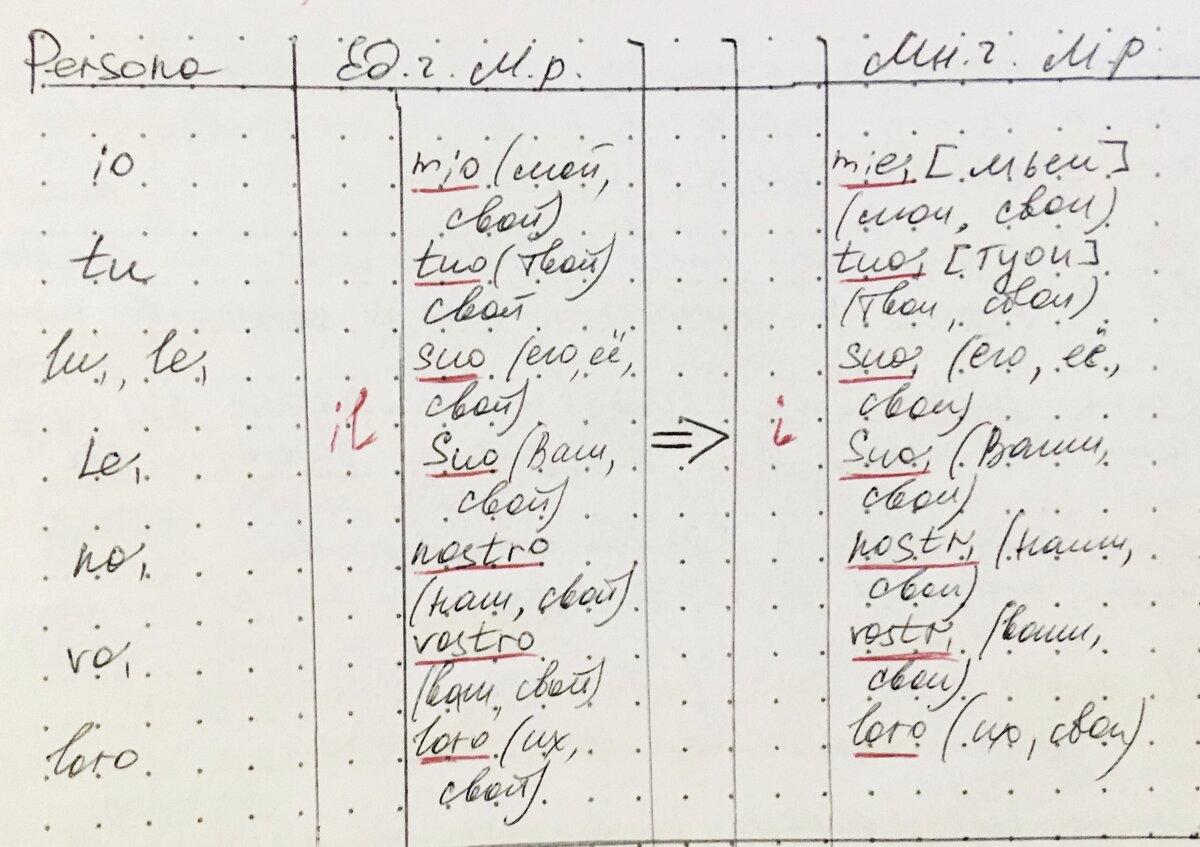 Persona Ед.ч. м.р. Мн.ч. м.р.
io mio (мой, miei [мьеи]
свой) (мои, свои)
tu tuo (твой) tuoi [туои]
свой (твои, свои)
lui, lei suo (его, её, suoi (его, её,
свой) свои)
il => i
Lei Suo (Ваш, Suoi (Ваши,
свой) свои)
noi nostro nostri (наши,
(наш, свой) свои)
voi vostro vostri (ваши,
(ваш, свой) свои)
loro loro (их, loro (их, свои)
свой)